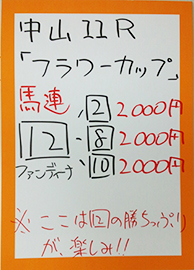 中山11R
「フラワーカップ」
馬連 2 2000円
12 - 8 2000円
ファンディーナ 10 2000円
※ ここは12の勝ちっぷり
が、楽しみ!!